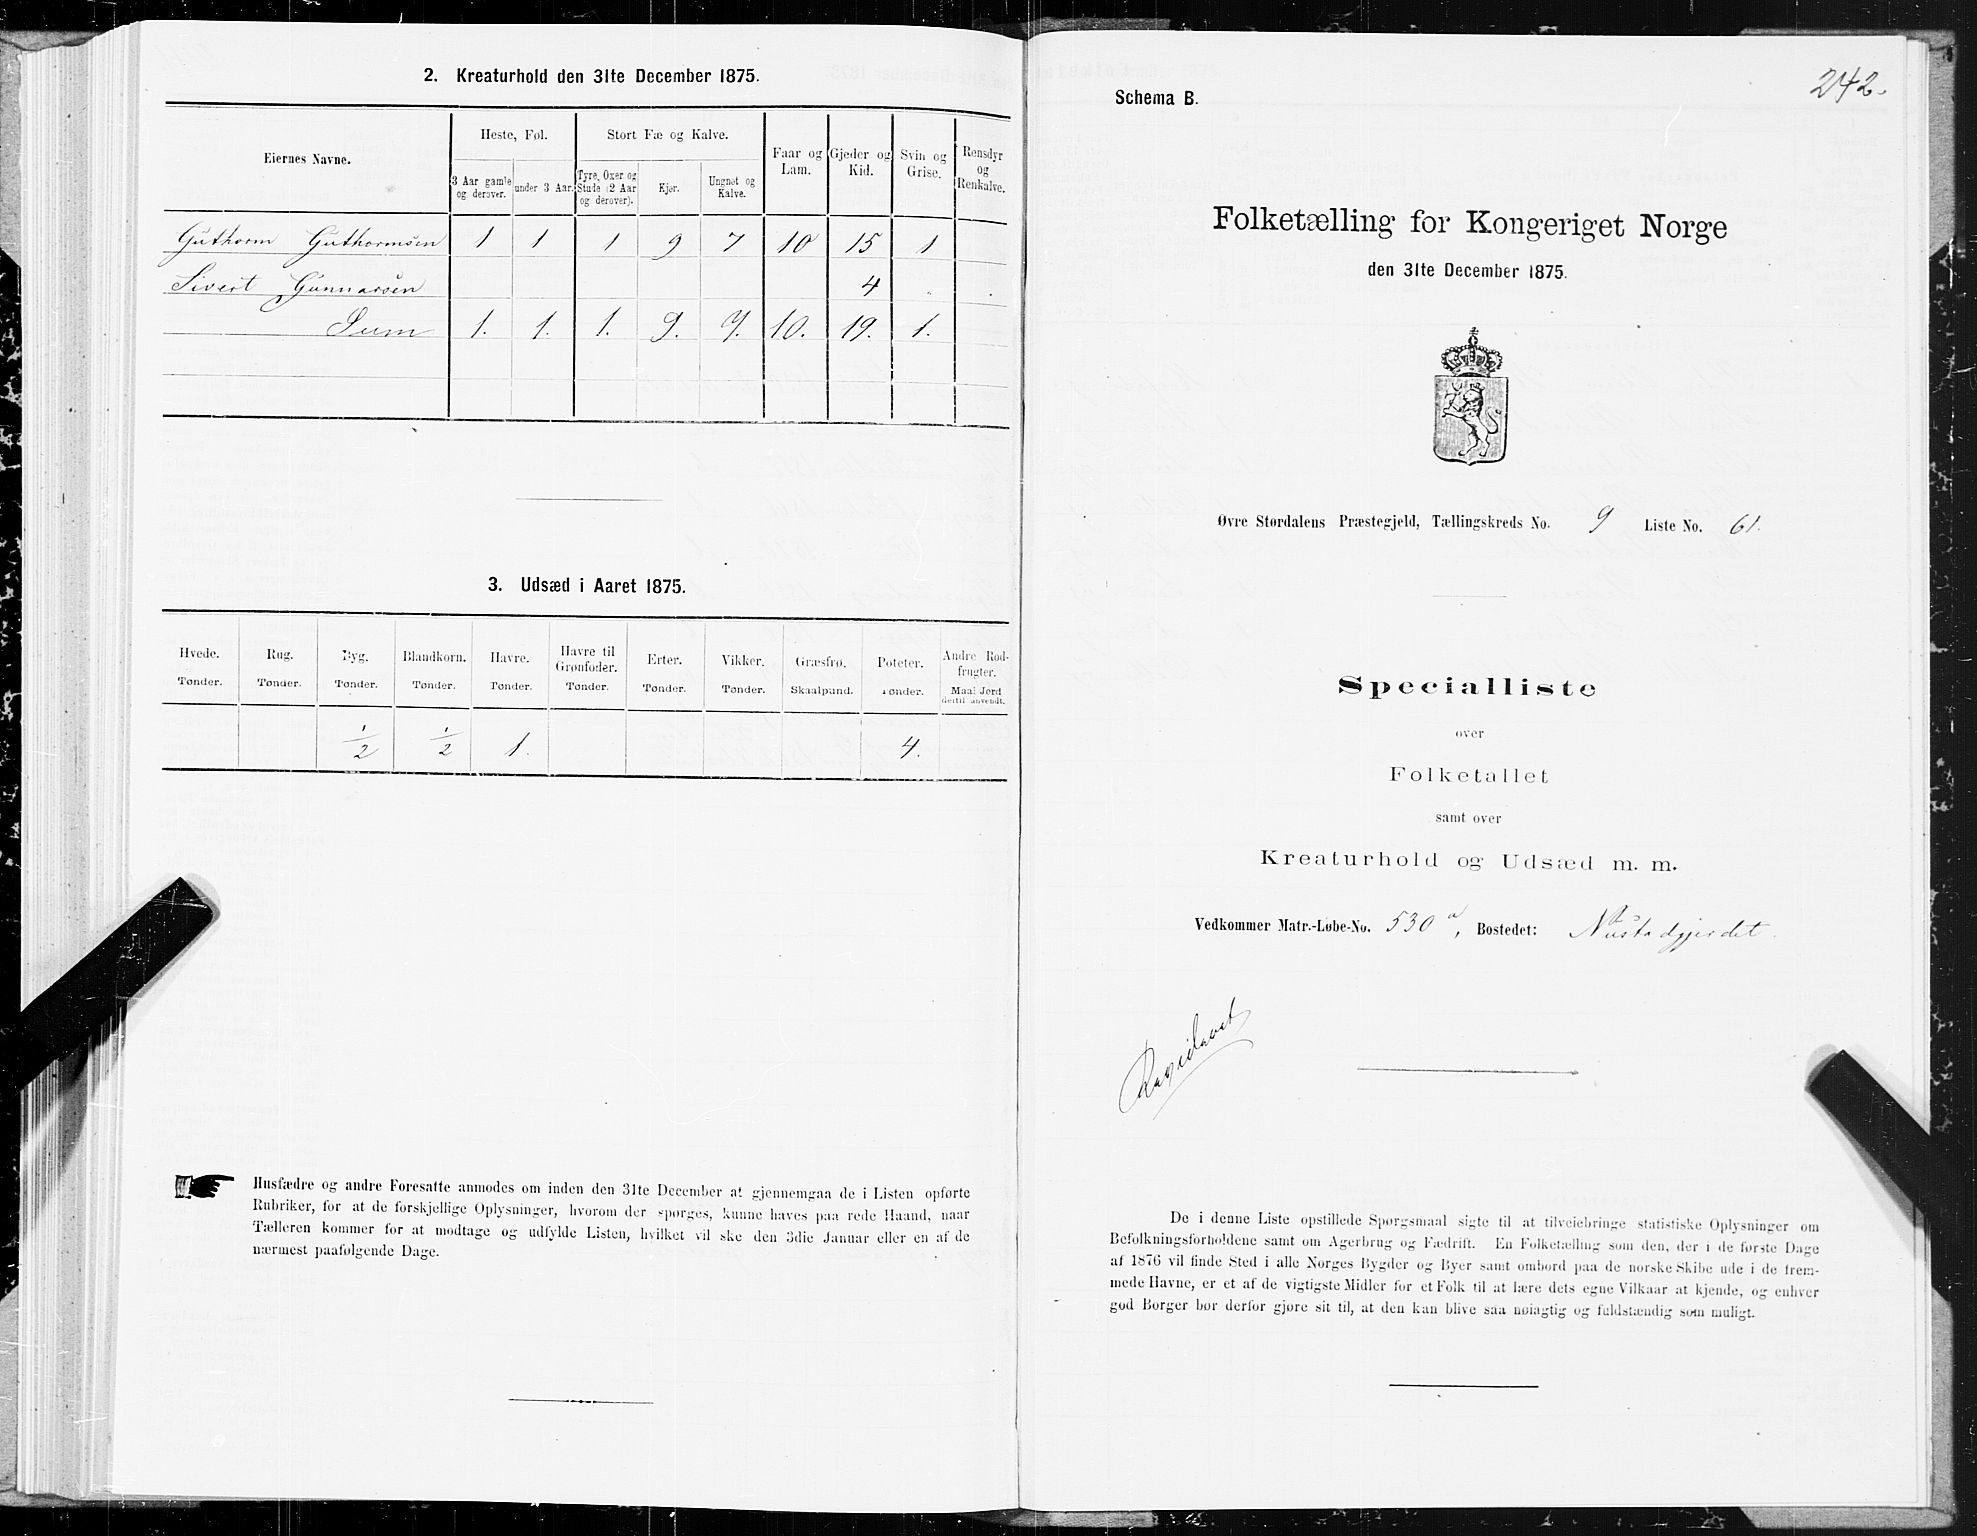 2. Kreaturhold den 31te December 1875.
Eiernes Navne.
Heste, Føl.
Stort Fæ og Kalve.
Faar og Lam.
Gjeder og Kid.
Svin og Grise.
Rensdyr og Renkalve.
3 Aar gamle og derover.
under 3 Aar.
Tyre, Oxer og Stude (2 Aar og derover).
Kjør.
Ungnøt og Kalve.
Guthorm Guthormsen 1 1 1 9 7 10 15 1
Sivert Gunnarsen 4
Sum 1. 1. 1. 9. 7. 10. 19. 1.
3. Udsæd i Aaret 1875.
Hvede. Rug. Byg. Blandkorn. Havre. Havre til Grønfoder. Erter. Vikker. Græsfrø. Poteter. Andre Rodfrugter.
Tønder. Tønder. Tønder. Tønder. Tønder. Tønder. Tønder. Tønder. Skaalpund. Tønder. Maal Jord dertil anvendt.
1/2 1/2 1. 4.
Husfædre og andre Foresatte anmodes om inden den 31te December at gjennemgaa de i Listen opførte
Rubriker, for at de forskjellige Oplysninger, hvorom der spørges, kunne haves paa rede Haand, naar
Tælleren kommer for at modtage og udfylde Listen, hvilket vil ske den 3die Januar eller en af de
nærmest paafølgende Dage.
242.
Schema B.
Folketælling for Kongeriget Norge
den 31te December 1875.
Øvre Størdalens Præstegjeld, Tællingskreds No. 9 Liste No. 61.
Specialliste
over
Folketallet
samt over
Kreaturhold og Udsæd m. m.
Vedkommer Matr.-Løbe-No. 530a, Bostedet: Nustadgjerdet.
De i denne Liste opstillede Spørgsmaal sigte til at tilveiebringe statistiske Oplysninger om
Befolkningsforholdene samt om Agerbrug og Fædrift. En Folketælling som den, der i de første Dage
af 1876 vil finde Sted i alle Norges Bygder og Byer samt ombord paa de norske Skibe ude i de frem-
mede Havne, er et af de vigtigste Midler for et Folk til at lære dets egne Vilkaar at kjende, og enhver
god Borger bør derfor gjøre sit til, at den kan blive saa nøiagtig og fuldstændig som muligt.